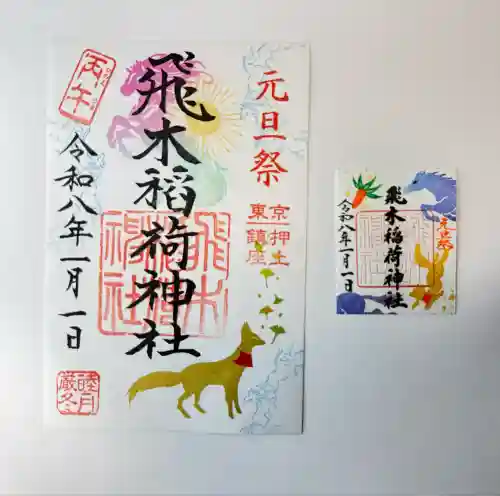 元旦祭
東京押上鎮座
飛木稲荷神社
飛木稲荷神社
丙午
令和八年一月一日
睦月
厳冬
元旦祭
飛木稲荷神社
令和八年一月一日